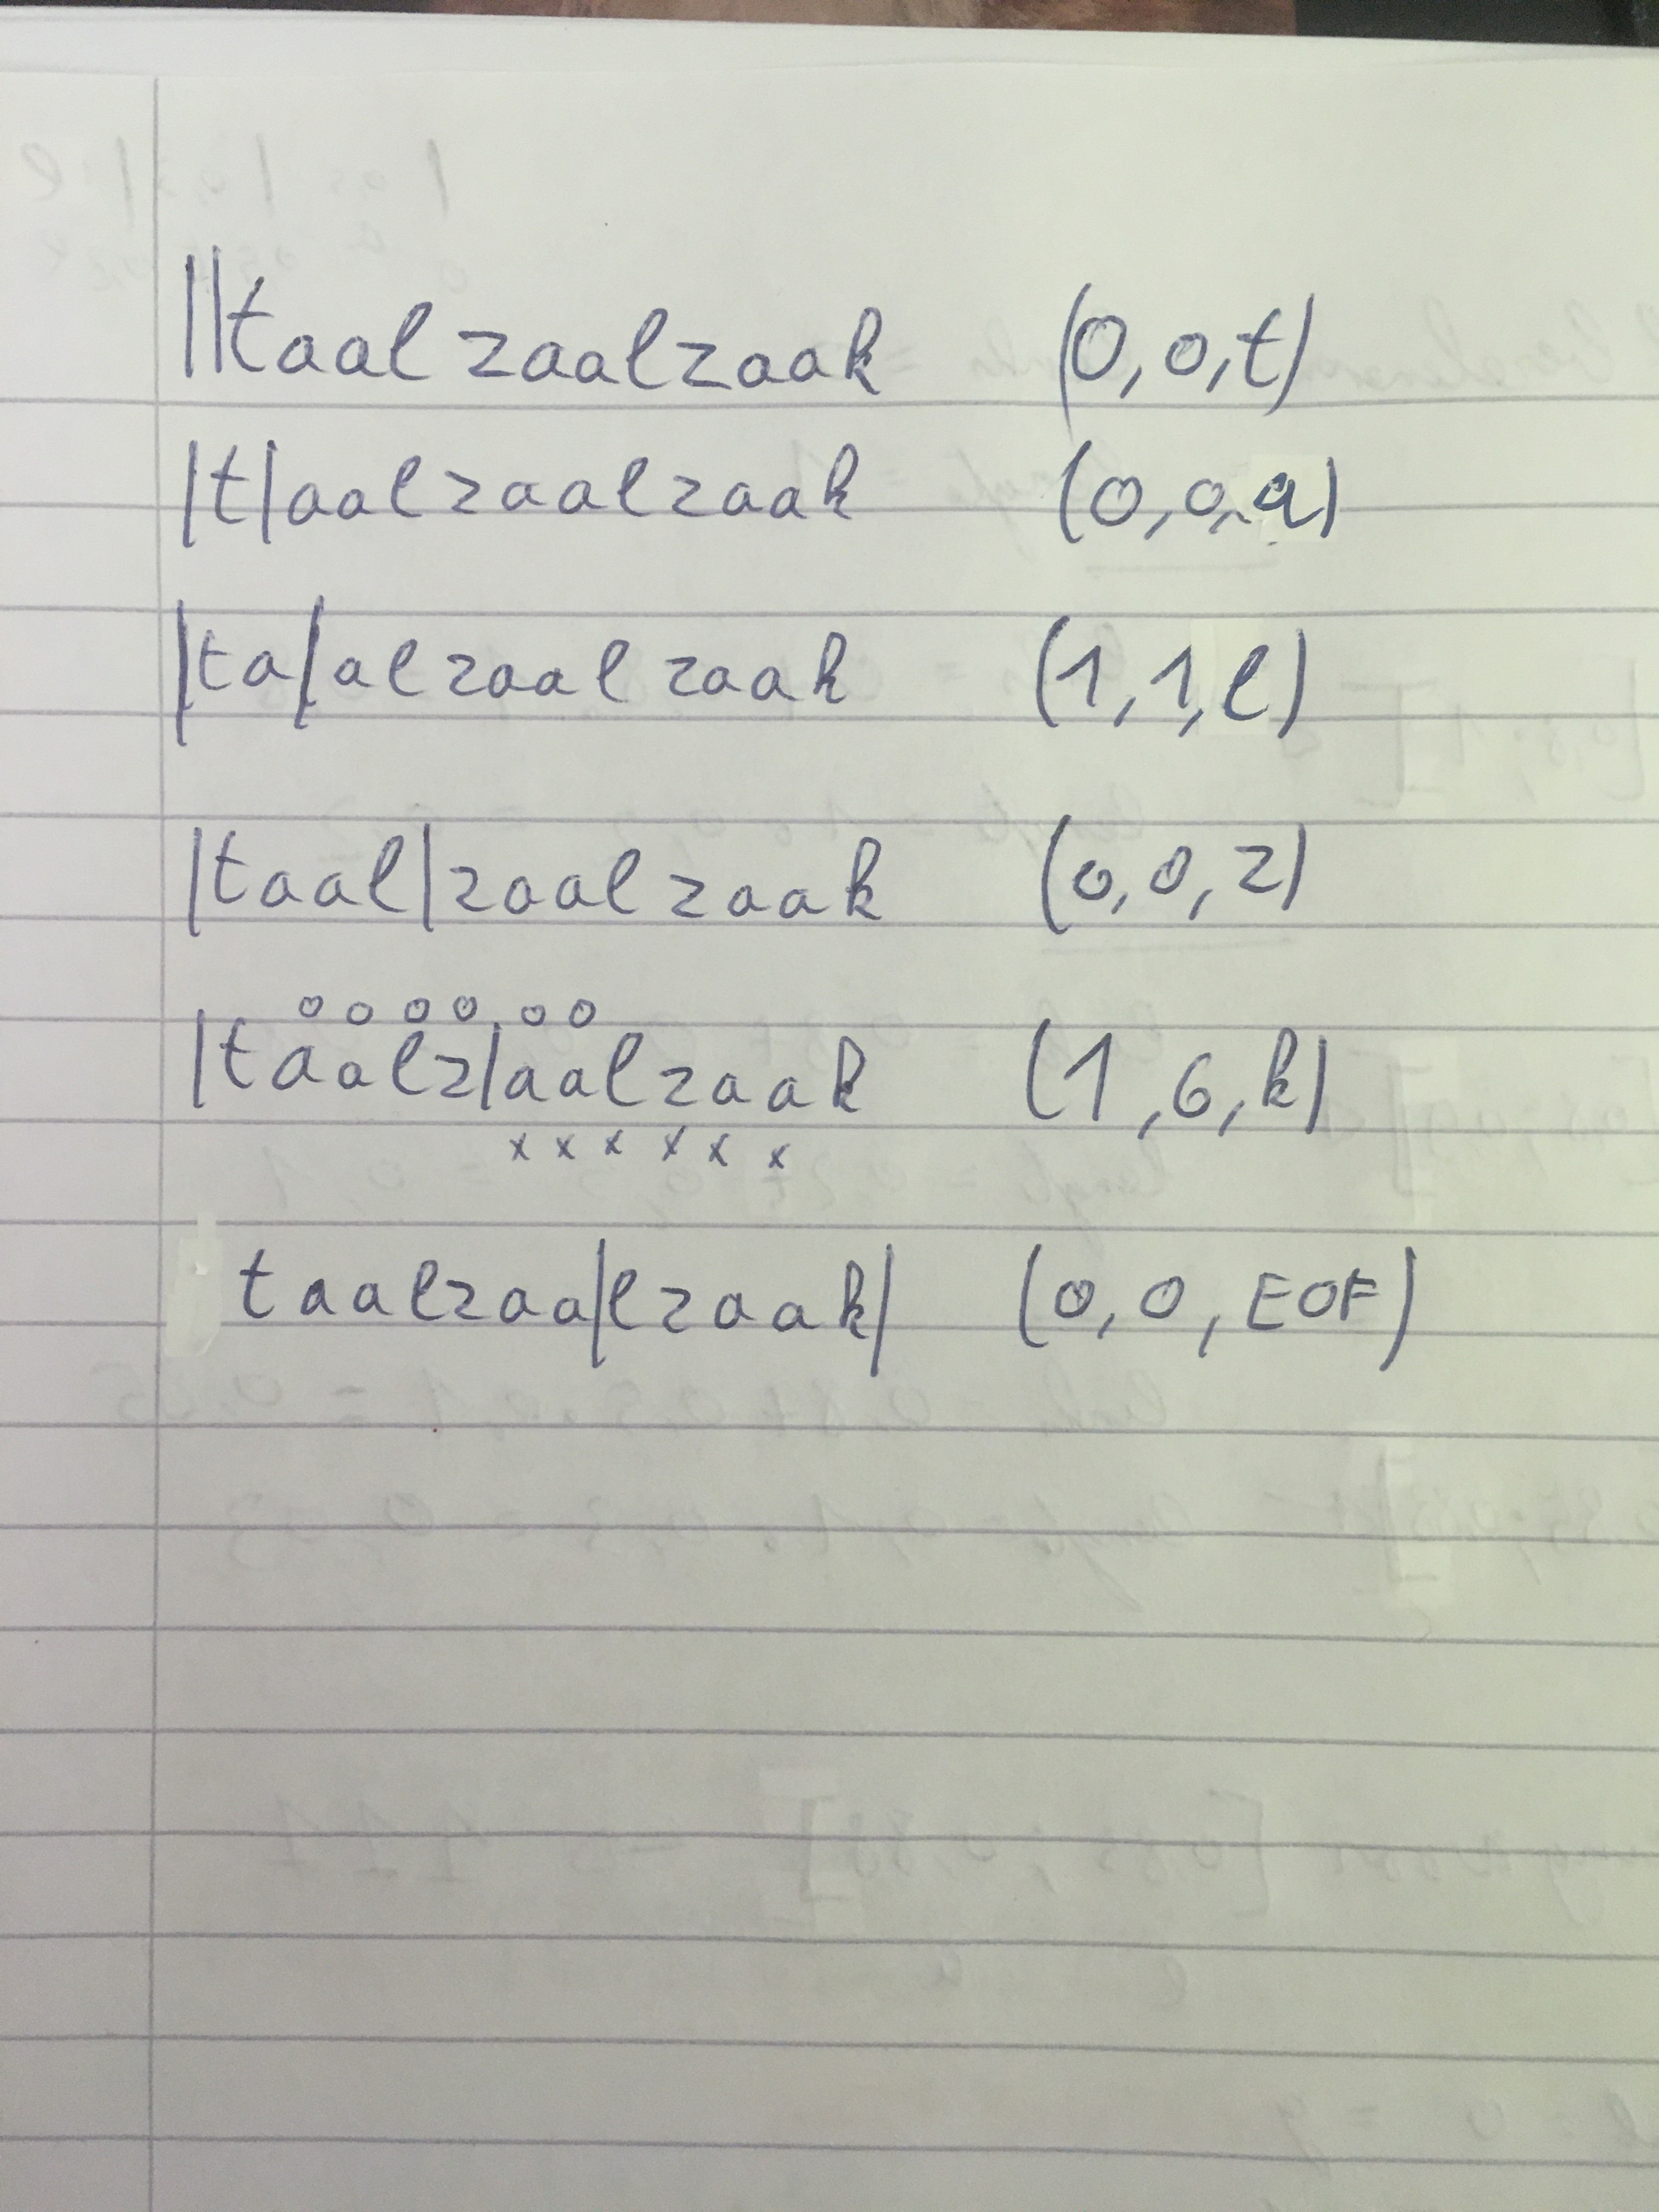 ||taalzaalzaak (0,0,t)
|t|aalzaalzaak (0,0,a)
|ta|alzaalzaak (1,1,l)
|taal|zaalzaak (0,0,z)
o o o o o o
|taalz|aalzaak (1,6,k)
x x x x x x
taalzaa|lzaak| (0,0,EOF)